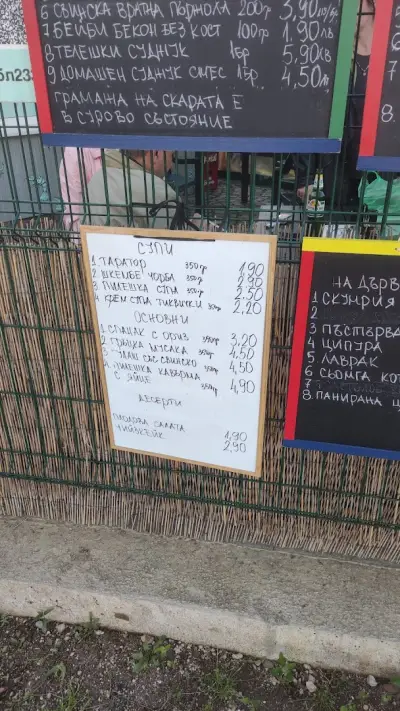 6 СВИНСКА ВРАТНА ПОРЖОЛА 200гр 3,90лв/бр
7 БЕЙБИ БЕКОН БЕЗ КОСТ 100гр 1,90лв
8 ТЕЛЕШКИ СУДЖУК 1бр 5,90лв
9 ДОМАШЕН СУДЖУК СМЕС 1бр. 4,50лв
ГРАМАЖА НА СКАРАТА Е
В СУРОВО СЪСТОЯНИЕ
СУПИ
1. ТАРАТОР 350гр 1,90
2 ШКЕМБЕ ЧОРБА 350гр
3 ПИЛЕШКА СУПА 350гр 2,50
4. КРЕМ СУПА ТИКВИЧКИ 2,20
ОСНОВНИ
1. СПАНАК С ОРИЗ 350гр 3,20
2. ГРЪЦКА МУСАКА 350гр 4,50
3. ГУЛАШ СЪС СВИНСКО 350гр 4,50
4. ПИЛЕШКА КАВЪРМА
С ЯЙЦЕ 350гр 4,90
ДЕСЕРТИ
ПЛОДОВА САЛАТА 1,90
ЧИЙЗКЕЙК 2,90
НА ДЪРВ
1 СКУМРИЯ
2
3 ПЪСТЪРВА
4 ЦИПУРА
5 ЛАВРАК
6 СЬОМГА КОТ
7
8. ПАНИРАНА Ц